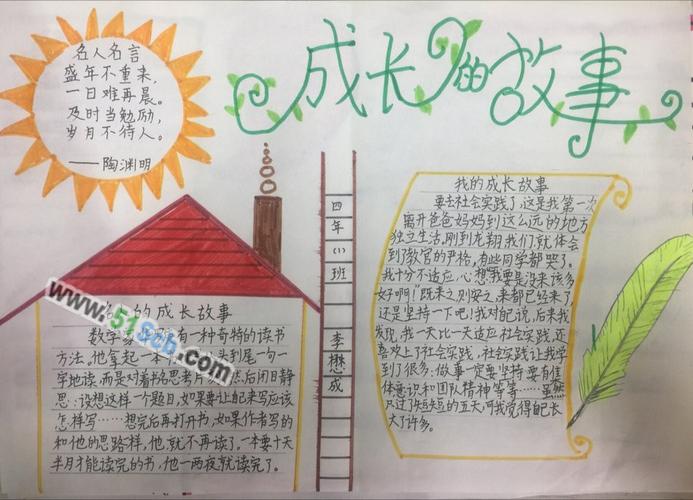 成长的故事
名人名言
盛年不重来,
一日难再晨。
及时当勉励,
岁月不待人。
——陶渊明
四年(1)班
李懋成
我的成长故事
要去社会实践了,这是我第一次
离开爸爸妈妈到这么远的地方
独立生活。刚到龙翔我们就体会
到了教官的严格,有些同学都哭了。
我十分不适应,心想:我要是没来该多
好啊!"既来之则安之,来都已经来了,
还是坚持一下吧!我对自己说。后来我
发现,我一天比一天适应社会实践,还
喜欢上了社会实践。社会实践让我学
到了很多:做事一定要坚持,要有集
体意识和团队精神等等……虽然
只过了短短的五天,可我觉得自己长
大了许多。
的成长故事
数学家 有一种奇特的读书
方法。他拿起一本 头到尾一句一
字地读,而是对着书名思考片 然后闭目静
思:设想这样一个题目,如果要让自己来写应该
怎样写……想完后再打开书,如果作者写的
和他的思路样,他就不再读了。一本要十天
半月才能读完的书,他一两夜就读完了。
www.51Scb.com